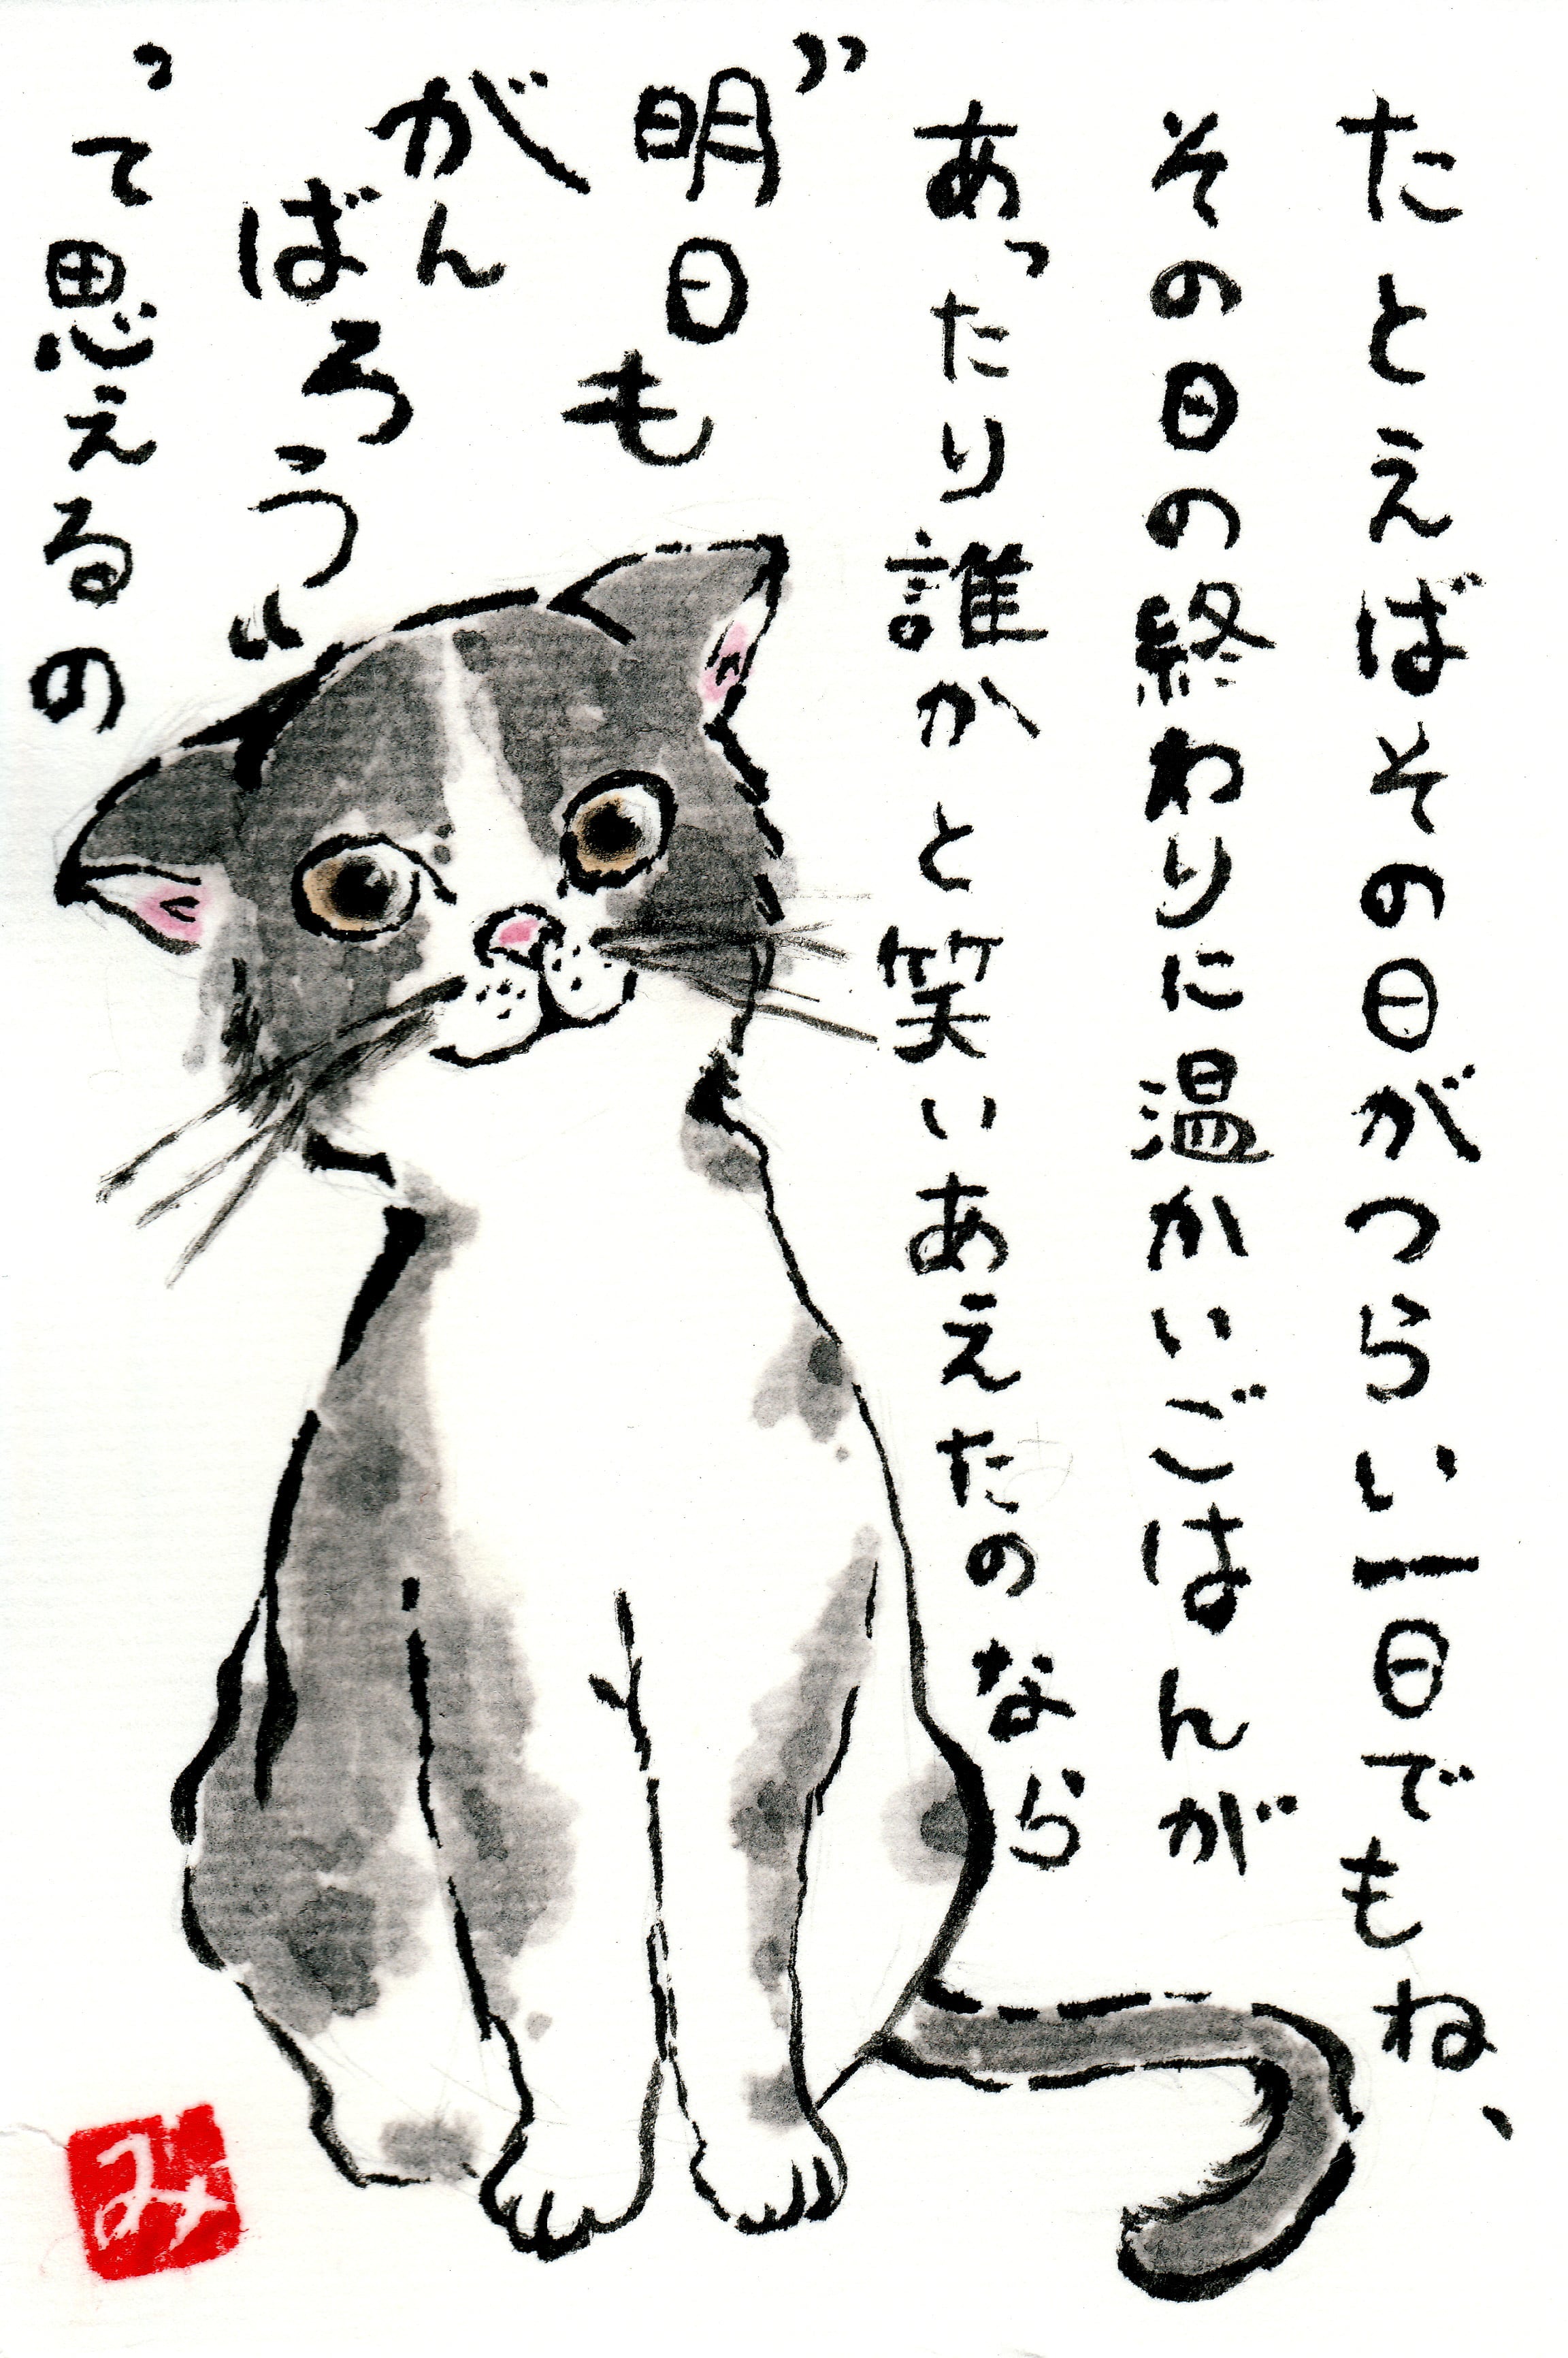 たとえばその日がつらい一日でもね、
その日の終わりに温かいごはんが
あったり誰かと笑いあえたのなら
”明日も
がん
ばろう“
って思えるの
み